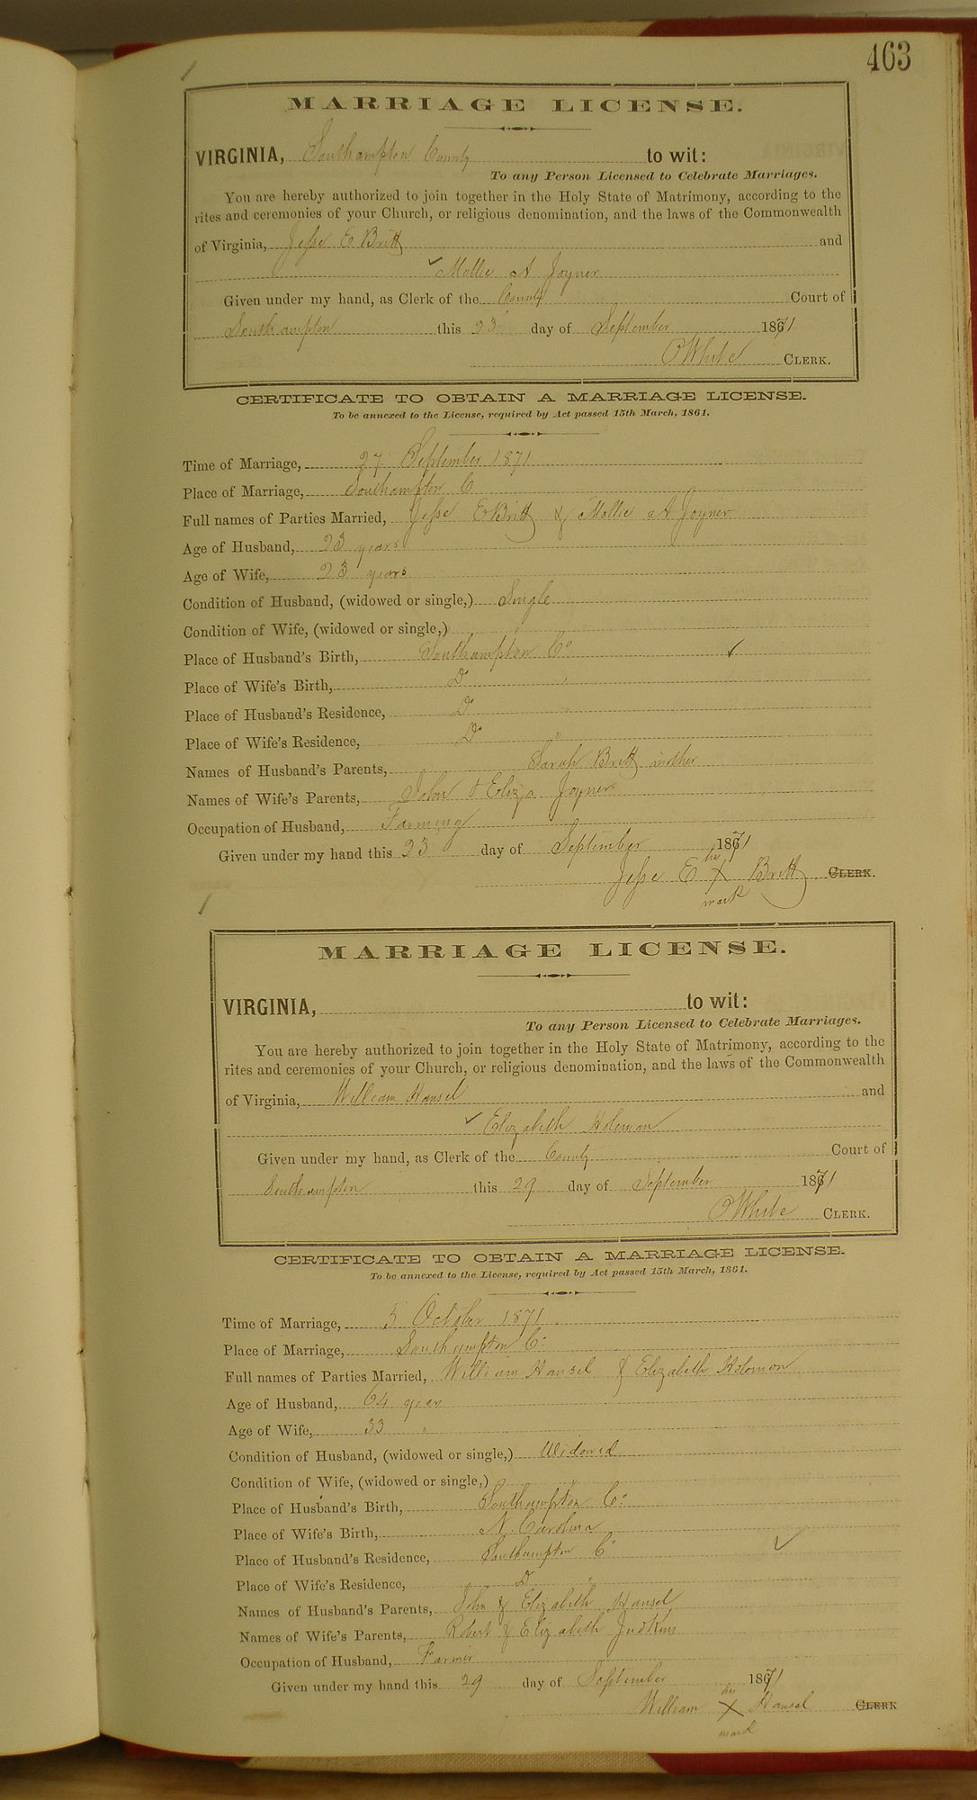 463
MARRIAGE LICENSE.
VIRGINIA, Southampton County to wit:
To any Person Licensed to Celebrate Marriages.
You are hereby authorized to join together in the Holy State of Matrimony, according to the
rites and ceremonies of your Church, or religious denomination, and the laws of the Commonwealth
of Virginia, Jesse E Britt and
Mollie A Joyner
Given under my hand, as Clerk of the County Court of
Southampton this 23 day of September 1871
White CLERK.
CERTIFICATE TO OBTAIN A MARRIAGE LICENSE.
To be annexed to the License, required by Act passed 15th March, 1861.
Time of Marriage, 27 September 1871
Place of Marriage, Southampton C
Full names of Parties Married, Jesse E Britt & Mollie A Joyner
Age of Husband, 23 years
Age of Wife, 23 years
Condition of Husband, (widowed or single,) Single
Condition of Wife, (widowed or single,)
Place of Husband's Birth, Southampton Co
Place of Wife's Birth, Do
Place of Husband's Residence, Do
Place of Wife's Residence, Do
Names of Husband's Parents, Sarah Britt mother
Names of Wife's Parents, John & Eliza Joyner
Occupation of Husband, Farming
Given under my hand this 23 day of September 1871
his
Jesse E X Britt CLERK.
mark
MARRIAGE LICENSE.
VIRGINIA, to wit:
To any Person Licensed to Celebrate Marriages.
You are hereby authorized to join together in the Holy State of Matrimony, according to the
rites and ceremonies of your Church, or religious denomination, and the laws of the Commonwealth
of Virginia, William Hansel and
Elizabeth Holomon
Given under my hand, as Clerk of the County Court of
Southampton this 29 day of September 1871
White CLERK.
CERTIFICATE TO OBTAIN A MARRIAGE LICENSE.
To be annexed to the License, required by Act passed 15th March, 1861.
Time of Marriage, 5 October 1871
Place of Marriage, Southampton Co
Full names of Parties Married, William Hansel & Elizabeth Holomon
Age of Husband, 64 year
Age of Wife, 33
Condition of Husband, (widowed or single,) Widowed
Condition of Wife, (widowed or single,)
Place of Husband's Birth, Southampton Co
Place of Wife's Birth, N. Carolina
Place of Husband's Residence, Southampton Co
Place of Wife's Residence, Do
Names of Husband's Parents, John & Elizabeth Hansel
Names of Wife's Parents, Robert & Elizabeth Judkins
Occupation of Husband, Farmer
Given under my hand this 29 day of September 1871
his
William X Hansel CLERK
mark